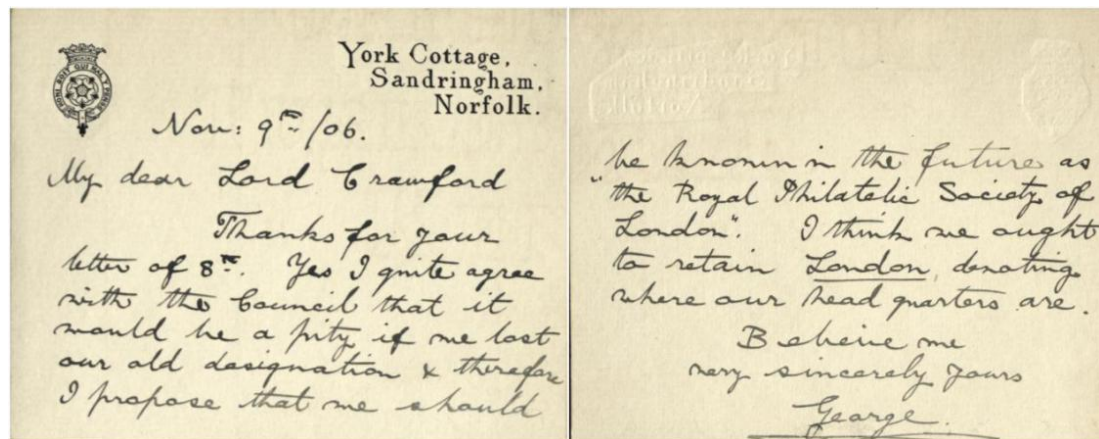 York Cottage,
Sandringham,
Norfolk.
Nov: 9th/06.
My dear Lord Crawford
Thanks for your
letter of 8th. Yes I quite agree
with the Council that it
would be a pity if we lost
our old designation & therefore
I propose that we should
be known in the future as
"the Royal Philatelic Society of
London". I think we ought
to retain London, denoting
where our head quarters are.
Believe me
very sincerely yours
George.